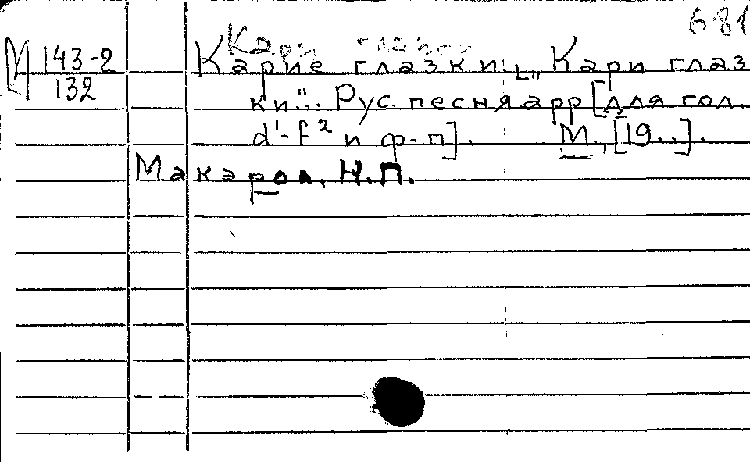 681
Кари глазки
М 143-2
132
Карие глазки: „Кари глаз
ки"... Рус. песня арр. [для гол.
d¹-f² и ф-п]. М., [19..].
Макаров, Н.П.